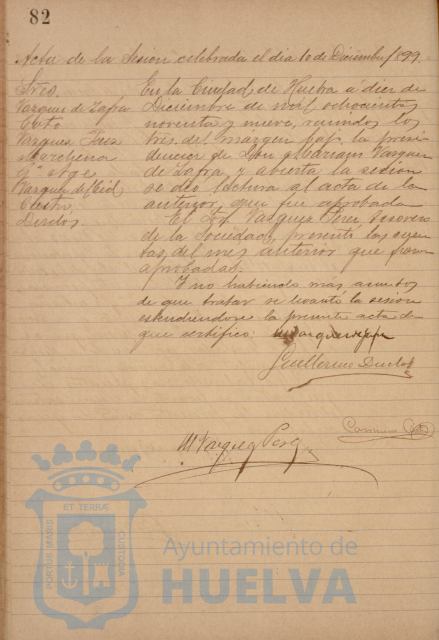 82
Acta de la Sesion celebrada el dia 10 de Diciembre/899.
Sres.
Vazquez de Zafra
Coto
Vazquez Perez
Marchena
Vazquez del Cid
Castro
Duclós
En la Ciudad de Huelva a diez de
Diciembre de mil ochocientos
noventa y nueve, reunidos los
Sres. del margen bajo la presi
dencia de Don Mariano Vazquez
de Zafra, y abierta la sesión
se dio lectura al acta de la
anterior, que fue aprobada
El Sor Vazquez Perez tesorero
de la Sociedad, presentó las cuen
tas, del mes anterior que fueron
aprobadas.
Y no habiendo más asuntos
de que tratar se levantó la sesión
estendiendose la presente acta de
que certifico:
Guillermo Duclos
Coto
M Vazquez Perez
ET TERRÆ
PORTUS MARIS
CUSTODIA
Ayuntamiento de
HUELVA